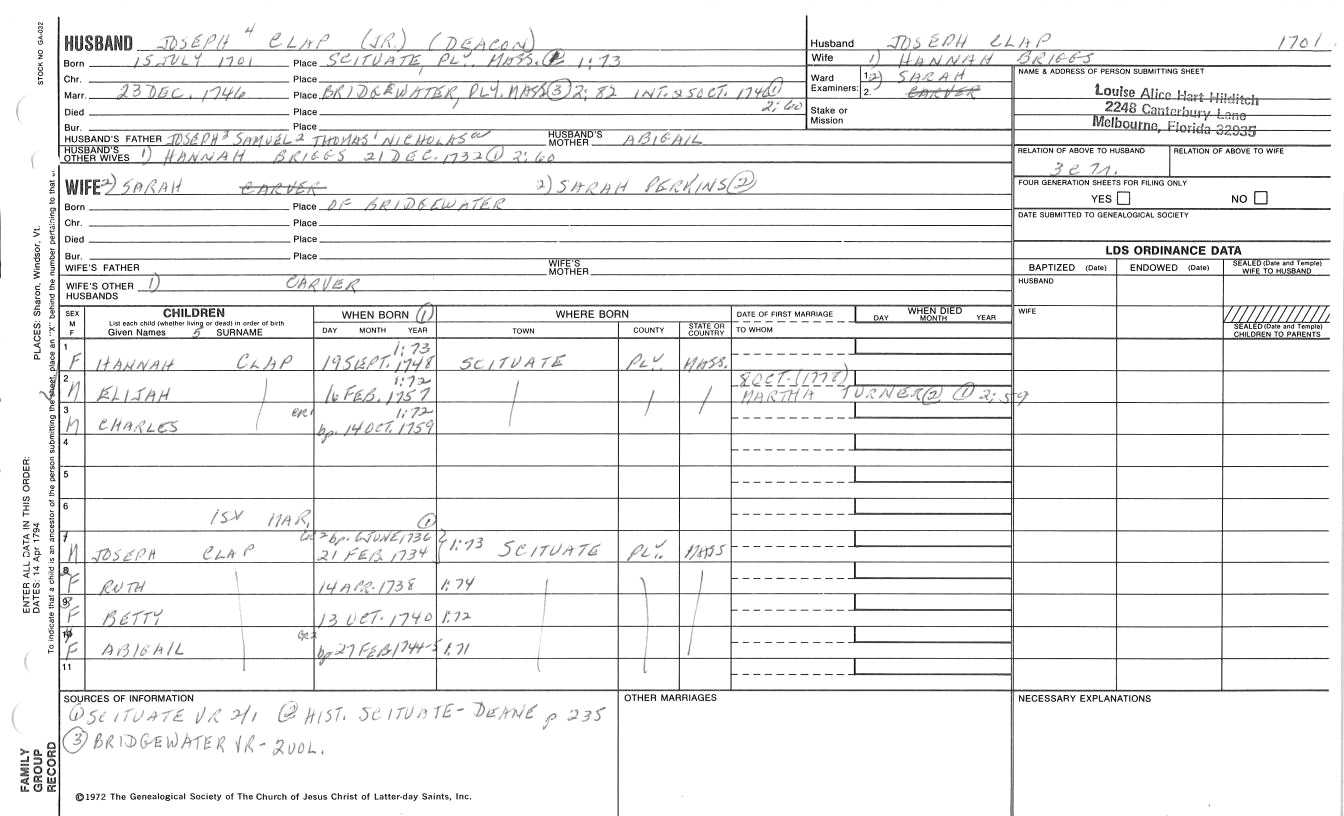 STOCK NO GA-032
HUSBAND JOSEPH 4 CLAP (JR.) (DEACON)
Born 15 JULY 1701 Place SCITUATE, PLY. MASS. 1:73
Chr. Place
Marr. 23 DEC. 1746 Place BRIDGEWATER, PLY. MASS ③ 2; 82 INT. 25 OCT. 1746 ①
2; 60
Died Place
Bur. Place
HUSBAND'S FATHER JOSEPH 3 SAMUEL 2 THOMAS 1 NICHOLAS HUSBAND'S MOTHER ABIGAIL
HUSBAND'S OTHER WIVES 1) HANNAH BRIGGS 21 DEC. 1732 ① 2; 60
Husband JOSEPH CLAP 1701
Wife 1) HANNAH BRIGGS
Ward Examiners: 1. 2) SARAH
2. CARVER
Stake or Mission
NAME & ADDRESS OF PERSON SUBMITTING SHEET
Louise Alice Hart Hilditch
2248 Canterbury Lane
Melbourne, Florida 32935
RELATION OF ABOVE TO HUSBAND RELATION OF ABOVE TO WIFE
FOUR GENERATION SHEETS FOR FILING ONLY
YES NO
DATE SUBMITTED TO GENEALOGICAL SOCIETY
WIFE 2) SARAH CARVER 2) SARAH PERKINS ②
Born Place OF BRIDGEWATER
Chr. Place
Died Place
Bur. Place
WIFE'S FATHER WIFE'S MOTHER
WIFE'S OTHER HUSBANDS 1) CARVER
LDS ORDINANCE DATA
BAPTIZED (Date) ENDOWED (Date) SEALED (Date and Temple) WIFE TO HUSBAND
HUSBAND
WIFE
SEALED (Date and Temple) CHILDREN TO PARENTS
SEX M F CHILDREN List each child (whether living or dead) in order of birth Given Names 5 SURNAME
WHEN BORN ① DAY MONTH YEAR
WHERE BORN TOWN COUNTY STATE OR COUNTRY
DATE OF FIRST MARRIAGE TO WHOM
WHEN DIED DAY MONTH YEAR
1 F HANNAH CLAP 1:73 19 SEPT. 1748 SCITUATE PLY. MASS.
2 M ELIJAH 1:72 16 FEB. 1757 8 OCT. (1778) MARTHA TURNER ② ① 2; 59
3 M CHARLES 1:72 bp. 14 OCT. 1759
4
5
6
1st MAR. ①
7 M JOSEPH CLAP bp. 6 JUNE, 1736 21 FEB. 1734 1:73 SCITUATE PLY. MASS
8 F RUTH 14 APR. 1738 1:74
9 F BETTY 13 OCT. 1740 1:72
10 F ABIGAIL bp 27 FEB. 1744-5 1:71
11
SOURCES OF INFORMATION
① SCITUATE VR 2/1 ② HIST. SCITUATE - DEANE p 235
③ BRIDGEWATER VR - 2 VOL.
OTHER MARRIAGES
NECESSARY EXPLANATIONS
©1972 The Genealogical Society of The Church of Jesus Christ of Latter-day Saints, Inc.
FAMILY GROUP RECORD
ENTER ALL DATA IN THIS ORDER:
DATES: 14 Apr 1794
PLACES: Sharon, Windsor, Vt.
To indicate that a child is an ancestor of the person submitting the sheet, place an "X" behind the number pertaining to that